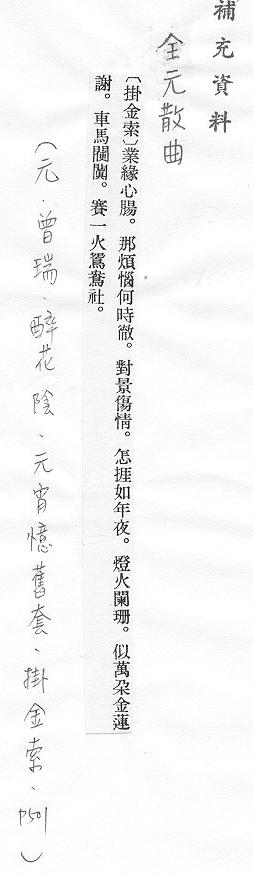 補充資料
全元散曲
〔掛金索〕業緣心腸。那煩惱何時徹。對景傷情。怎捱如年夜。燈火闌珊。似萬朵金蓮
謝。車馬闐闐。賽一火鴛鴦社。
(元．曾瑞．醉花陰．元宵憶舊套．掛金索．P501)